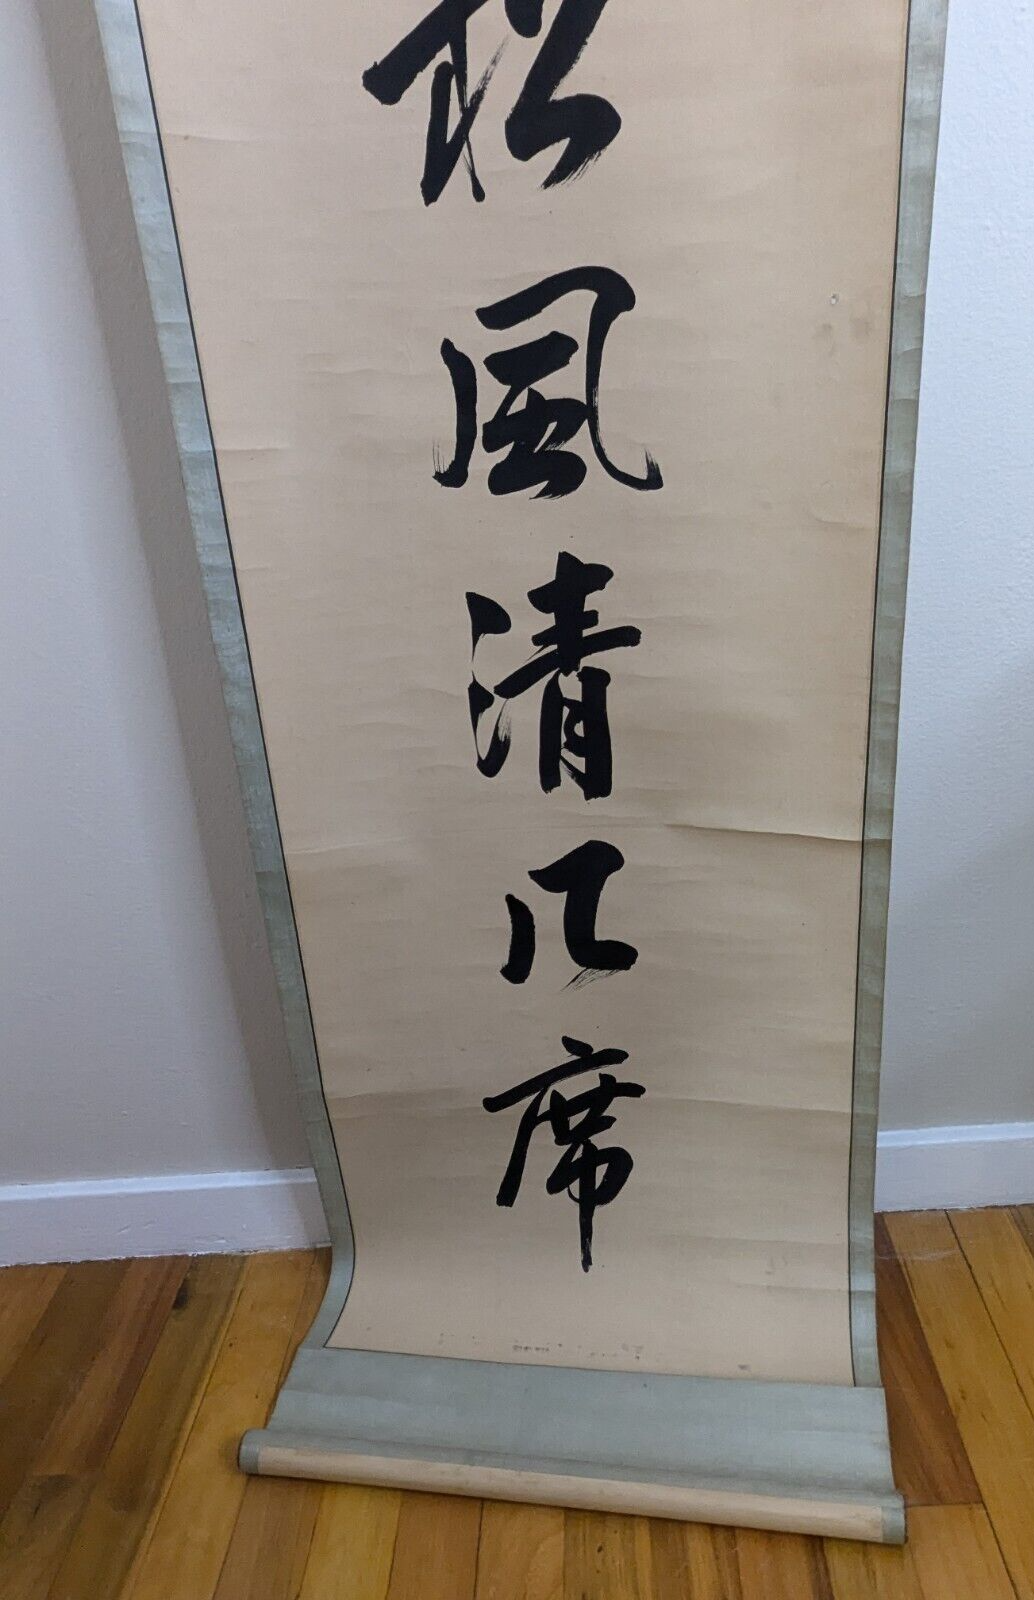 松風清几席